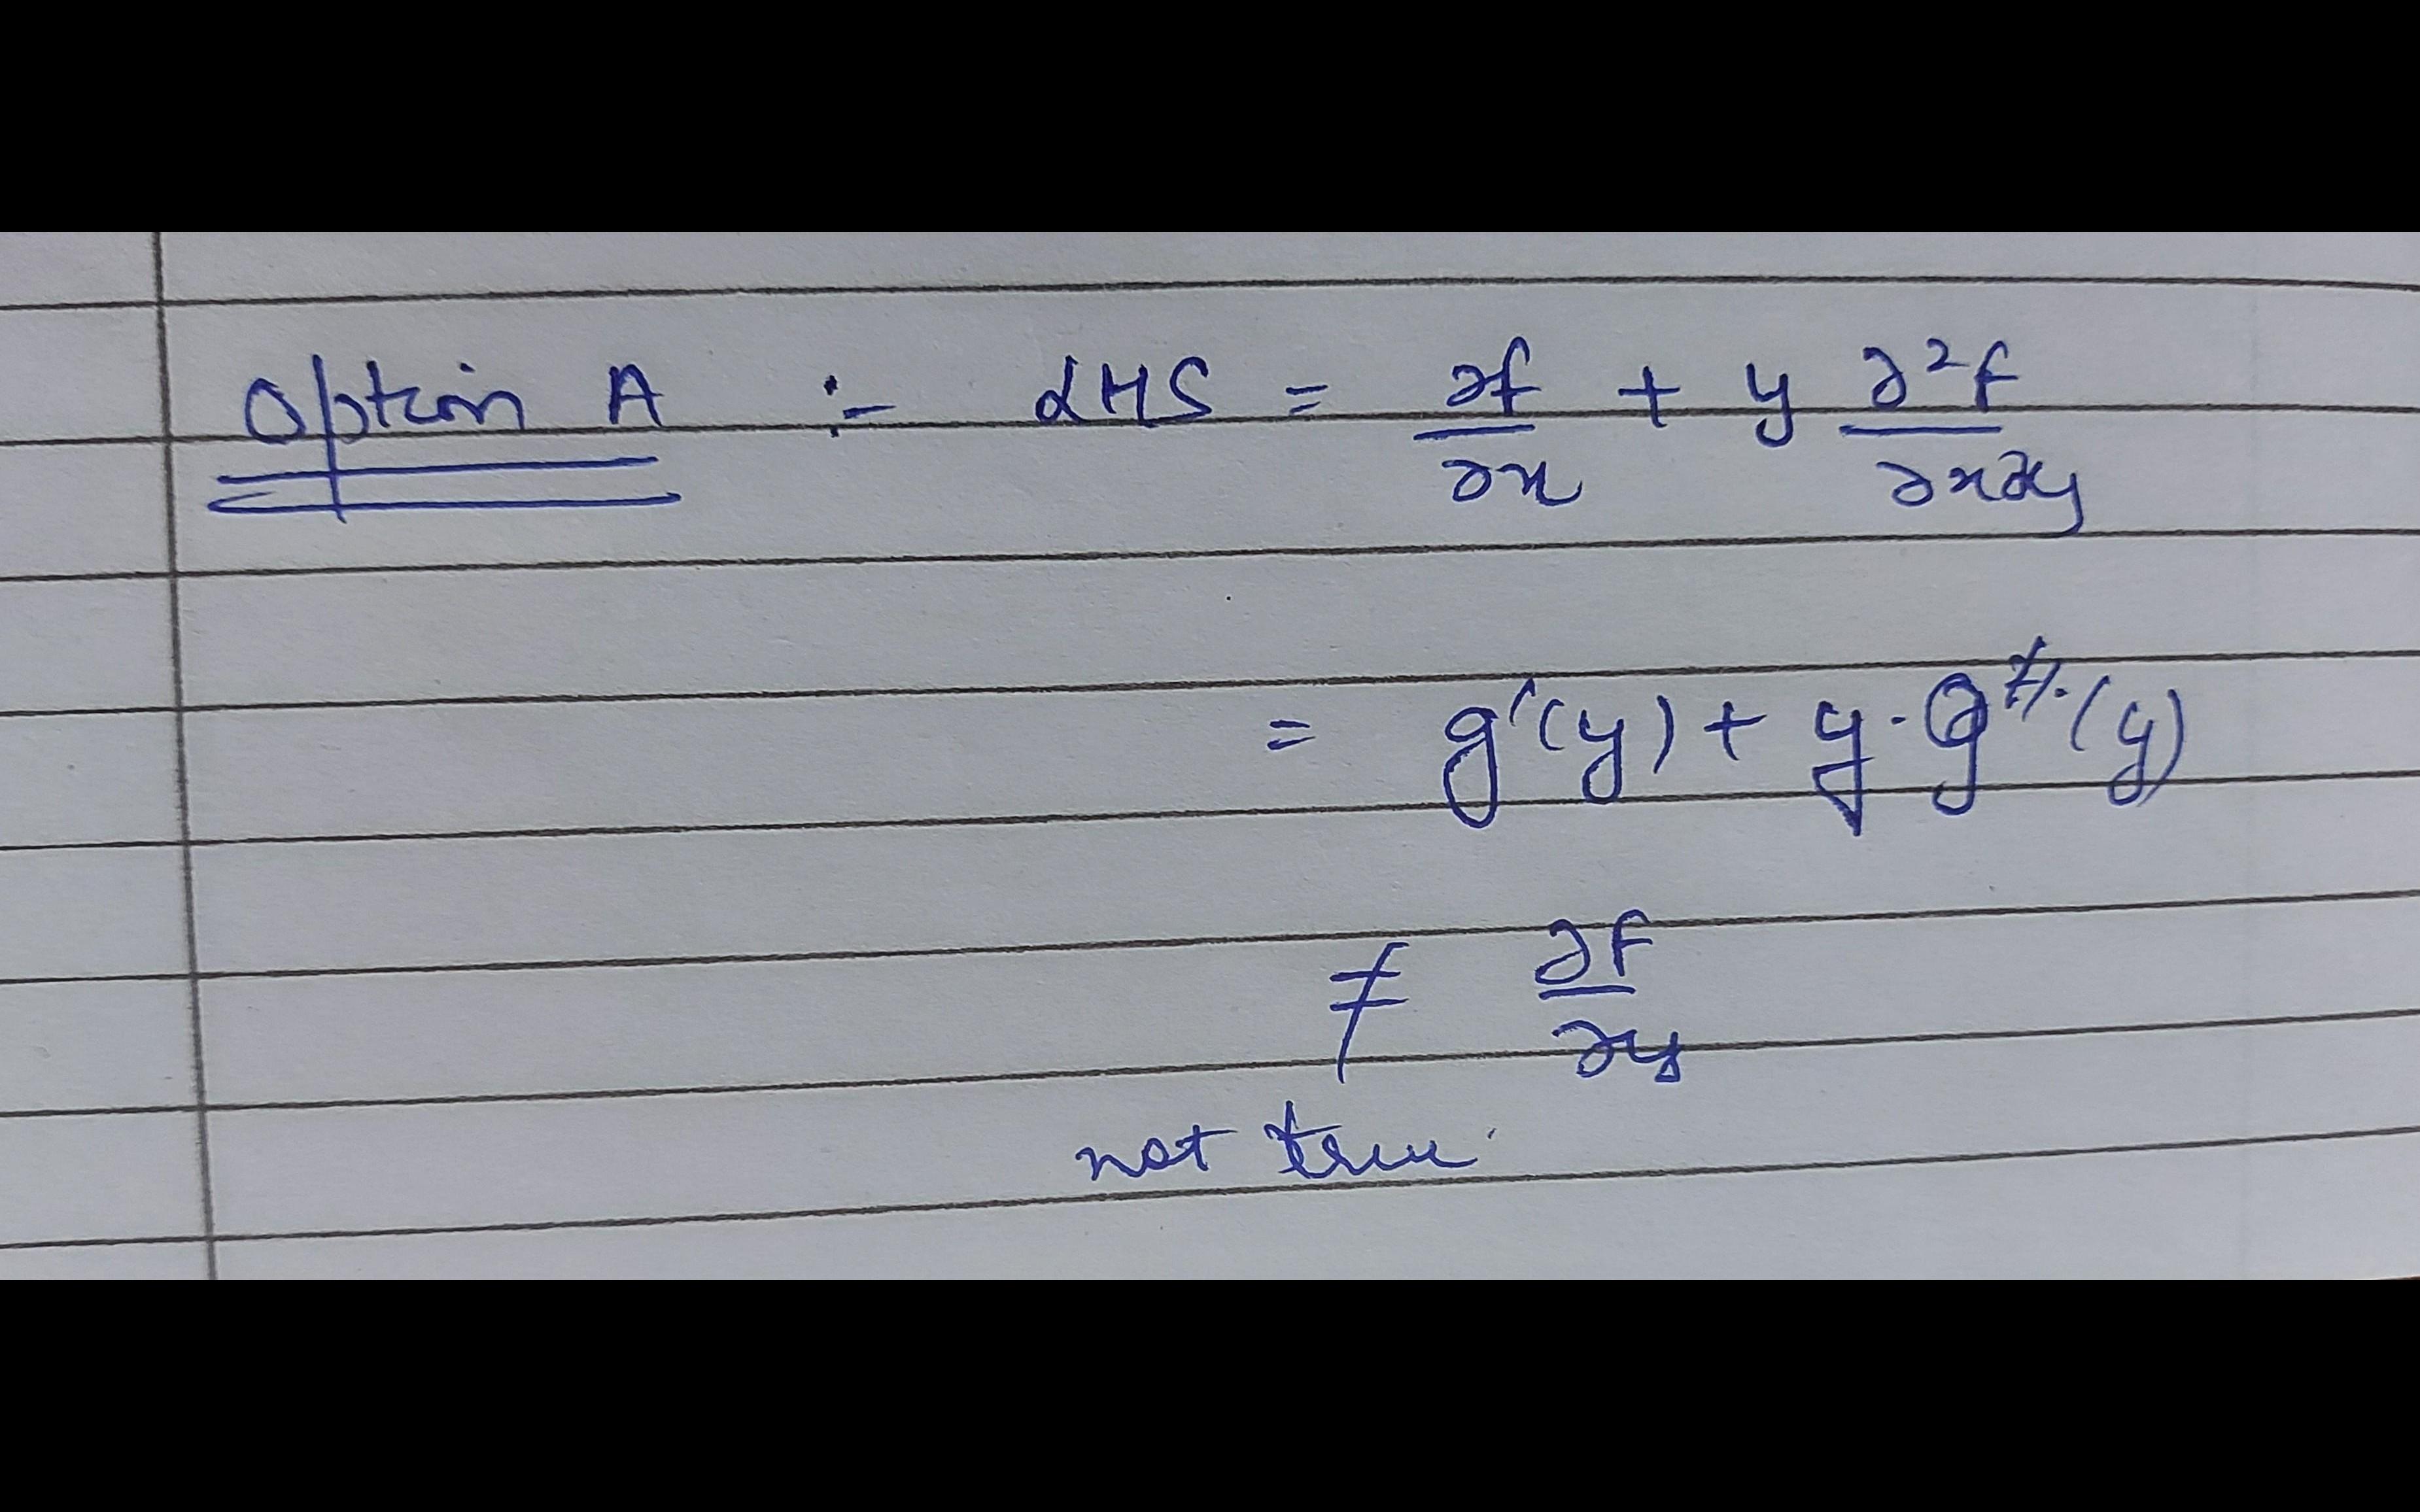 Option A :- LHS = ∂f/∂x + y ∂²f/∂x∂y
= g'(y) + y · g''(y)
≠ ∂f/∂y
not true.